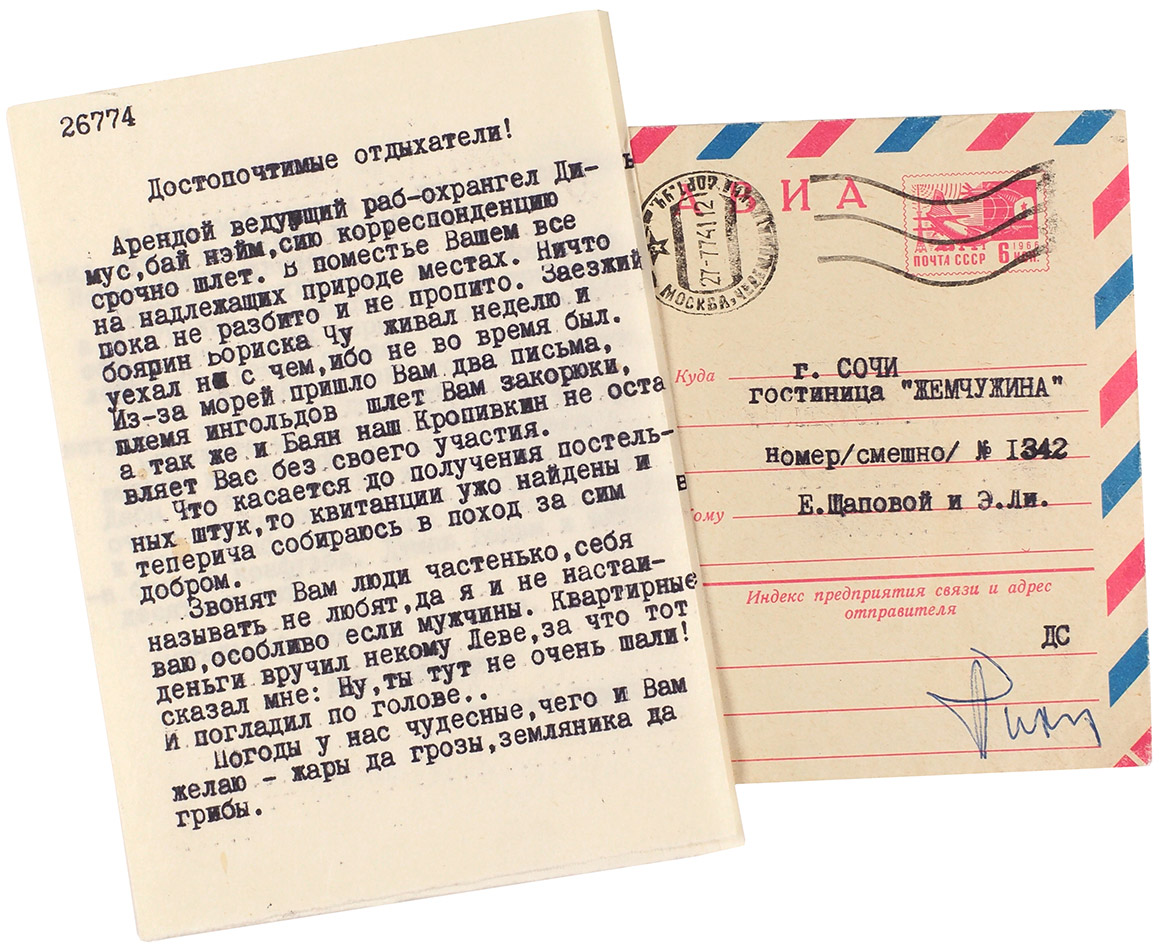 26774
Достопочтимые отдыхатели!
Арендой ведующий раб-охрангел Ди-
мус,бай нэйм,сию корреспонденцию
срочно шлет. В поместье Вашем все
на надлежащих природе местах. Ничто
пока не разбито и не пропито. Заезжий
боярин Бориска Чу живал неделю и
уехал ни с чем,ибо не во время был.
Из-за морей пришло Вам два письма,
племя ингольдов шлет Вам закорюки,
а так же и Баян наш Кропивкин не оста
вляет Вас без своего участия.
Что касается до получения постель-
ных штук,то квитанции ужо найдены и
теперича собираюсь в поход за сим
добром.
Звонят Вам люди частенько,себя
называть не любят,да я и не настаи-
ваю,особливо если мужчины. Квартирные
деньги вручил некому Леве,за что тот
сказал мне: Ну,ты тут не очень шали!
И погладил по голове..
Погоды у нас чудесные,чего и Вам
желаю - жары да грозы,земляника да
грибы.
АВИА
27-7741121
МОСКВА,
ПОЧТА СССР 6 коп.
1966
Куда г. СОЧИ
гостиница "ЖЕМЧУЖИНА"
номер/смешно/ № I342
ому Е.Щаповой и Э.Ли.
Индекс предприятия связи и адрес
отправителя
ДС